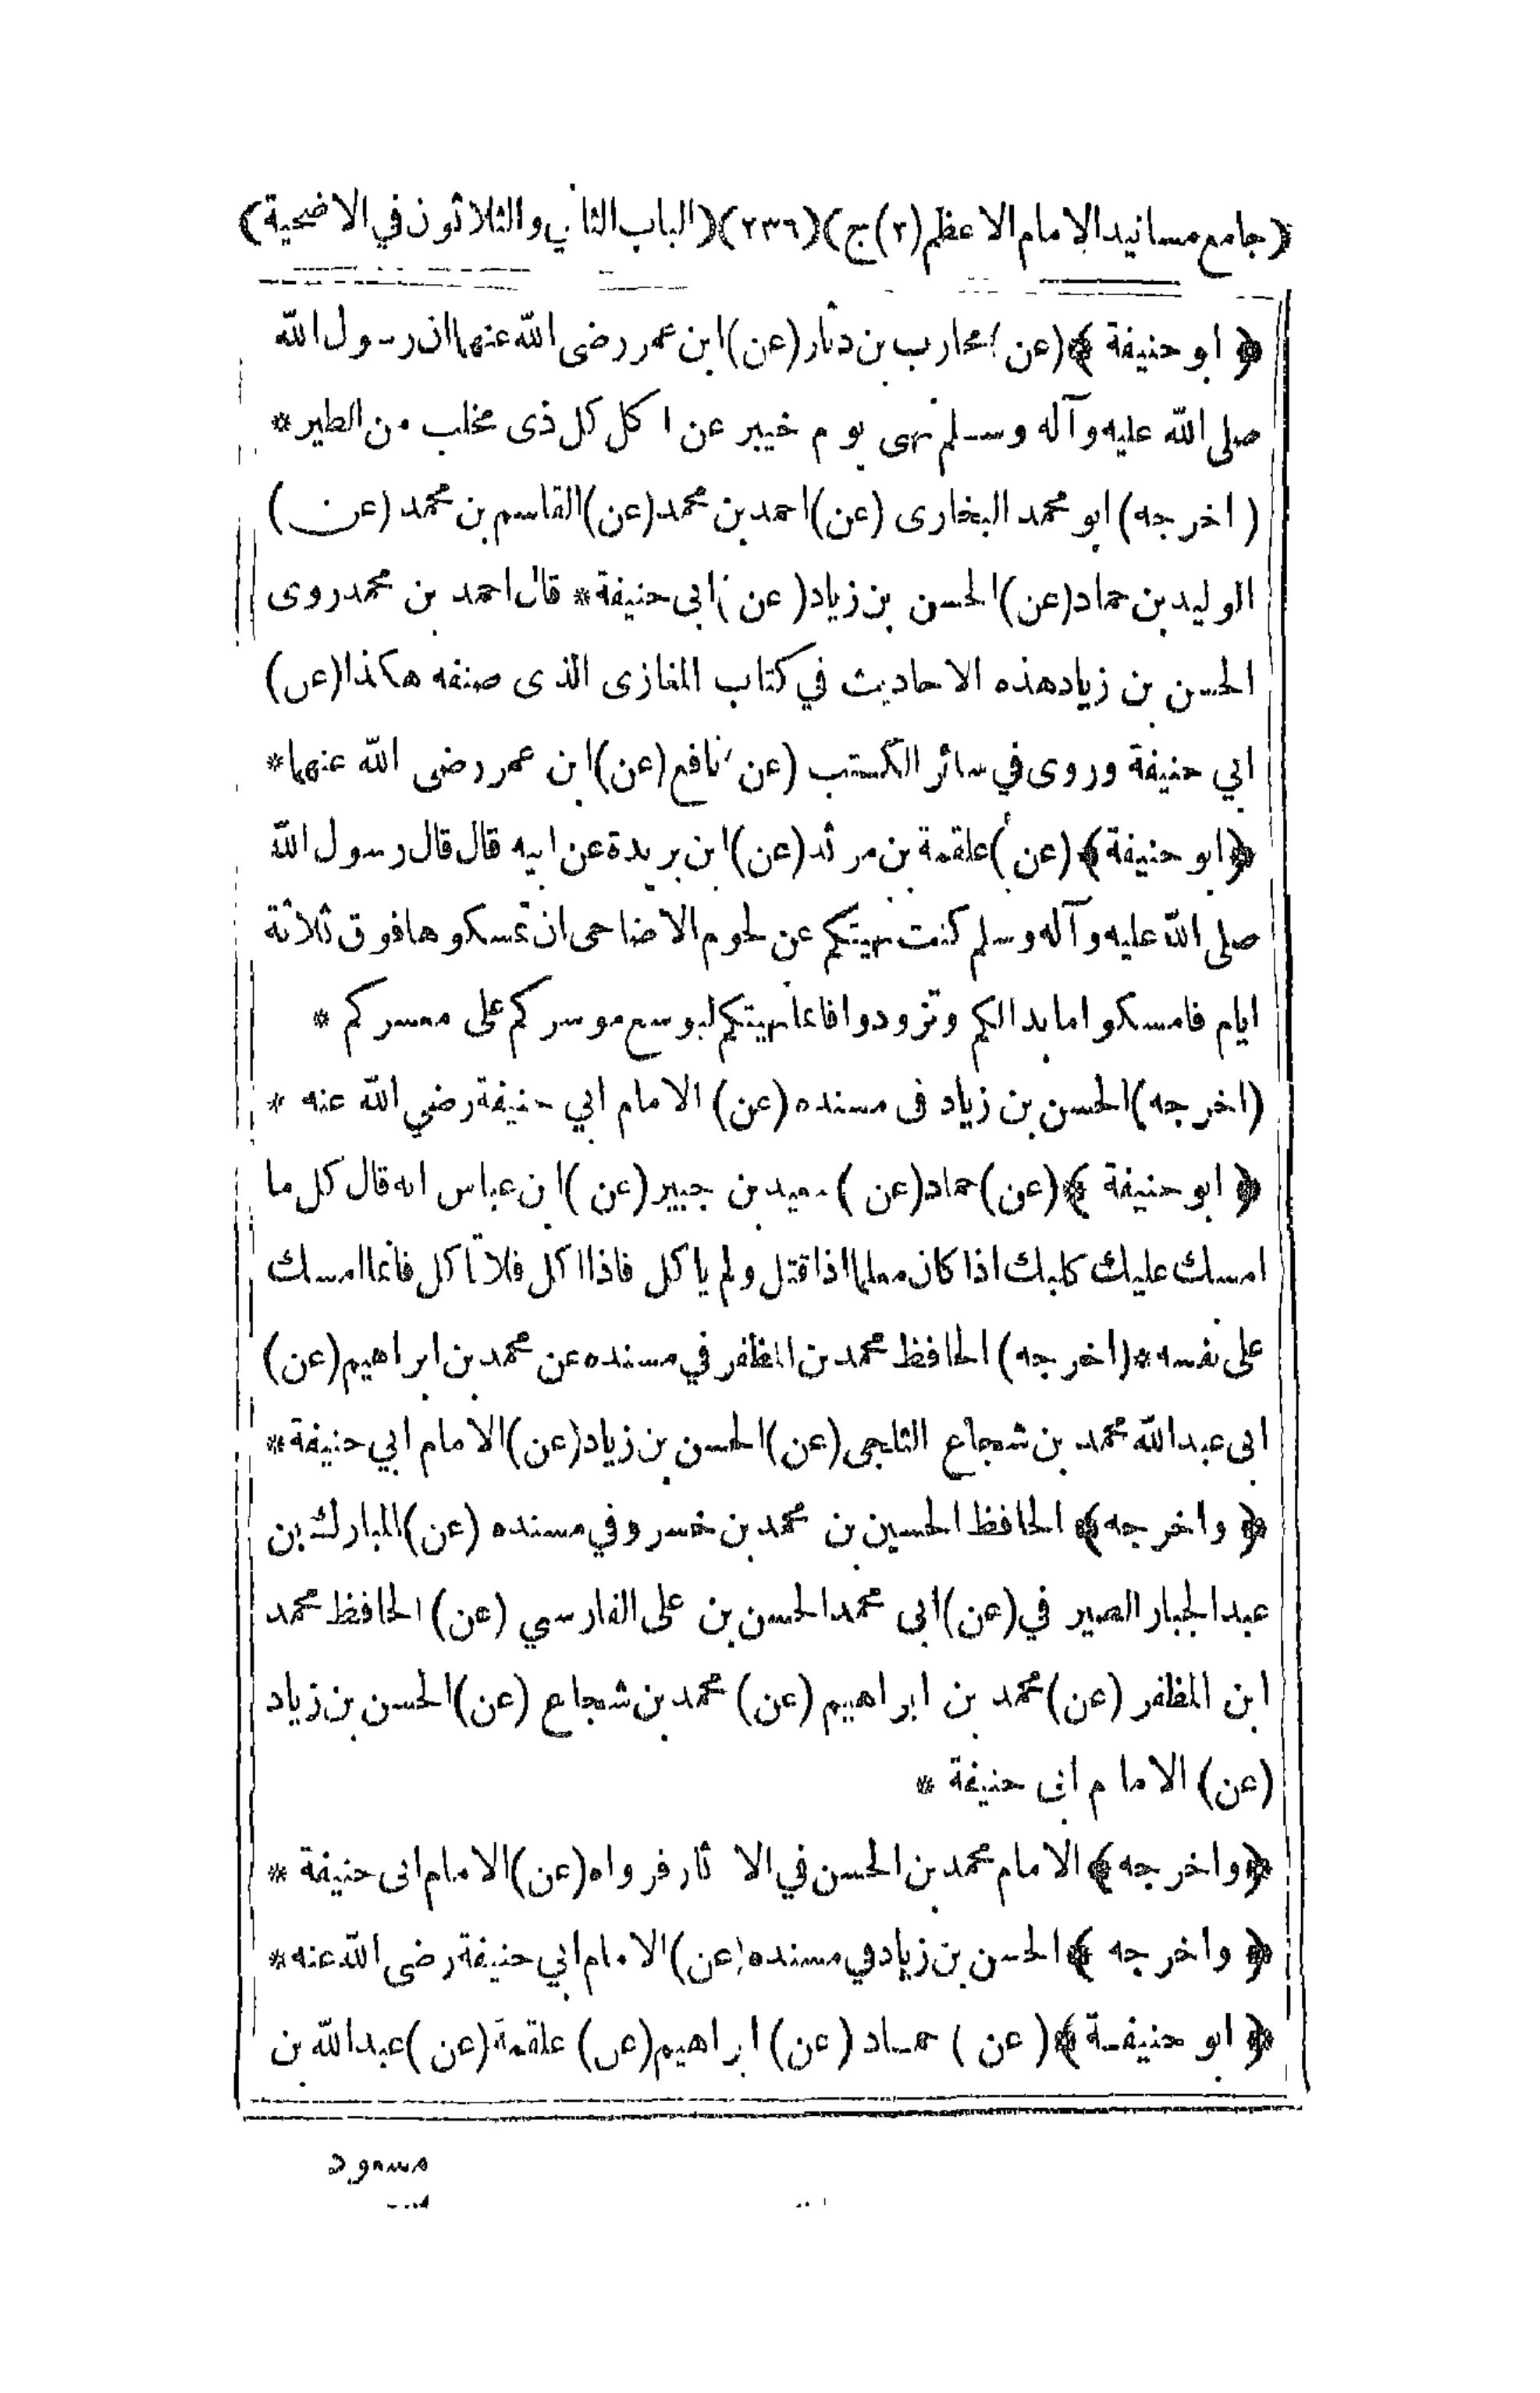 (جامع مسانيد الامام الاعظم (٢) ج) (٢٣٦) (الباب الثاني والثلاثون في الاضحية)
﴿ ابو حنيفة ﴾ (عن) محارب بن دثار (عن) ابن عمر رضى الله عنهما ان رسول الله
صلى الله عليه وآله وسلم نهى يوم خيبر عن اكل كل ذى مخلب من الطير *
(اخرجه) ابو محمد البخارى (عن) احمد بن محمد (عن) القاسم بن محمد (عن)
الوليد بن حماد (عن) الحسن بن زياد (عن) ابى حنيفة * قال احمد بن محمد روى
الحسن بن زياد هذه الاحاديث في كتاب المغازى الذى صنفه هكذا (عن)
ابي حنيفة وروى في سائر الكتب (عن) نافع (عن) ابن عمر رضى الله عنهما *
﴿ ابو حنيفة ﴾ (عن) علقمة بن مرثد (عن) ابن بريدة عن ابيه قال قال رسول الله
صلى الله عليه وآله وسلم كنت نهيتكم عن لحوم الاضاحى ان تمسكوها فوق ثلاثة
ايام فامسكوا ما بدا لكم وتزودوا فانما نهيتكم ليوسع موسركم على معسركم *
(اخرجه) الحسن بن زياد فى مسنده (عن) الامام ابي حنيفة رضي الله عنه *
﴿ ابو حنيفة ﴾ (عن) حماد (عن) سعيد بن جبير (عن) ابن عباس انه قال كل ما
امسك عليك كلبك اذا كان معلما اذا قتل ولم ياكل فاذا اكل فلا تاكل فانما امسك
على نفسه * (اخرجه) الحافظ محمد بن المظفر في مسنده عن محمد بن ابراهيم (عن)
ابى عبد الله محمد بن شجاع الثلجى (عن) الحسن بن زياد (عن) الامام ابي حنيفة *
﴿ واخرجه ﴾ الحافظ الحسين بن محمد بن خسرو في مسنده (عن) المبارك بن
عبد الجبار الصيرفي (عن) ابى محمد الحسن بن على الفارسي (عن) الحافظ محمد
ابن المظفر (عن) محمد بن ابراهيم (عن) محمد بن شجاع (عن) الحسن بن زياد
(عن) الامام ابى حنيفة *
﴿ واخرجه ﴾ الامام محمد بن الحسن في الاثار فرواه (عن) الامام ابى حنيفة *
﴿ واخرجه ﴾ الحسن بن زياد في مسنده (عن) الامام ابي حنيفة رضى الله عنه *
﴿ ابو حنيفة ﴾ (عن) حماد (عن) ابراهيم (عن) علقمة (عن) عبد الله بن
مسعود